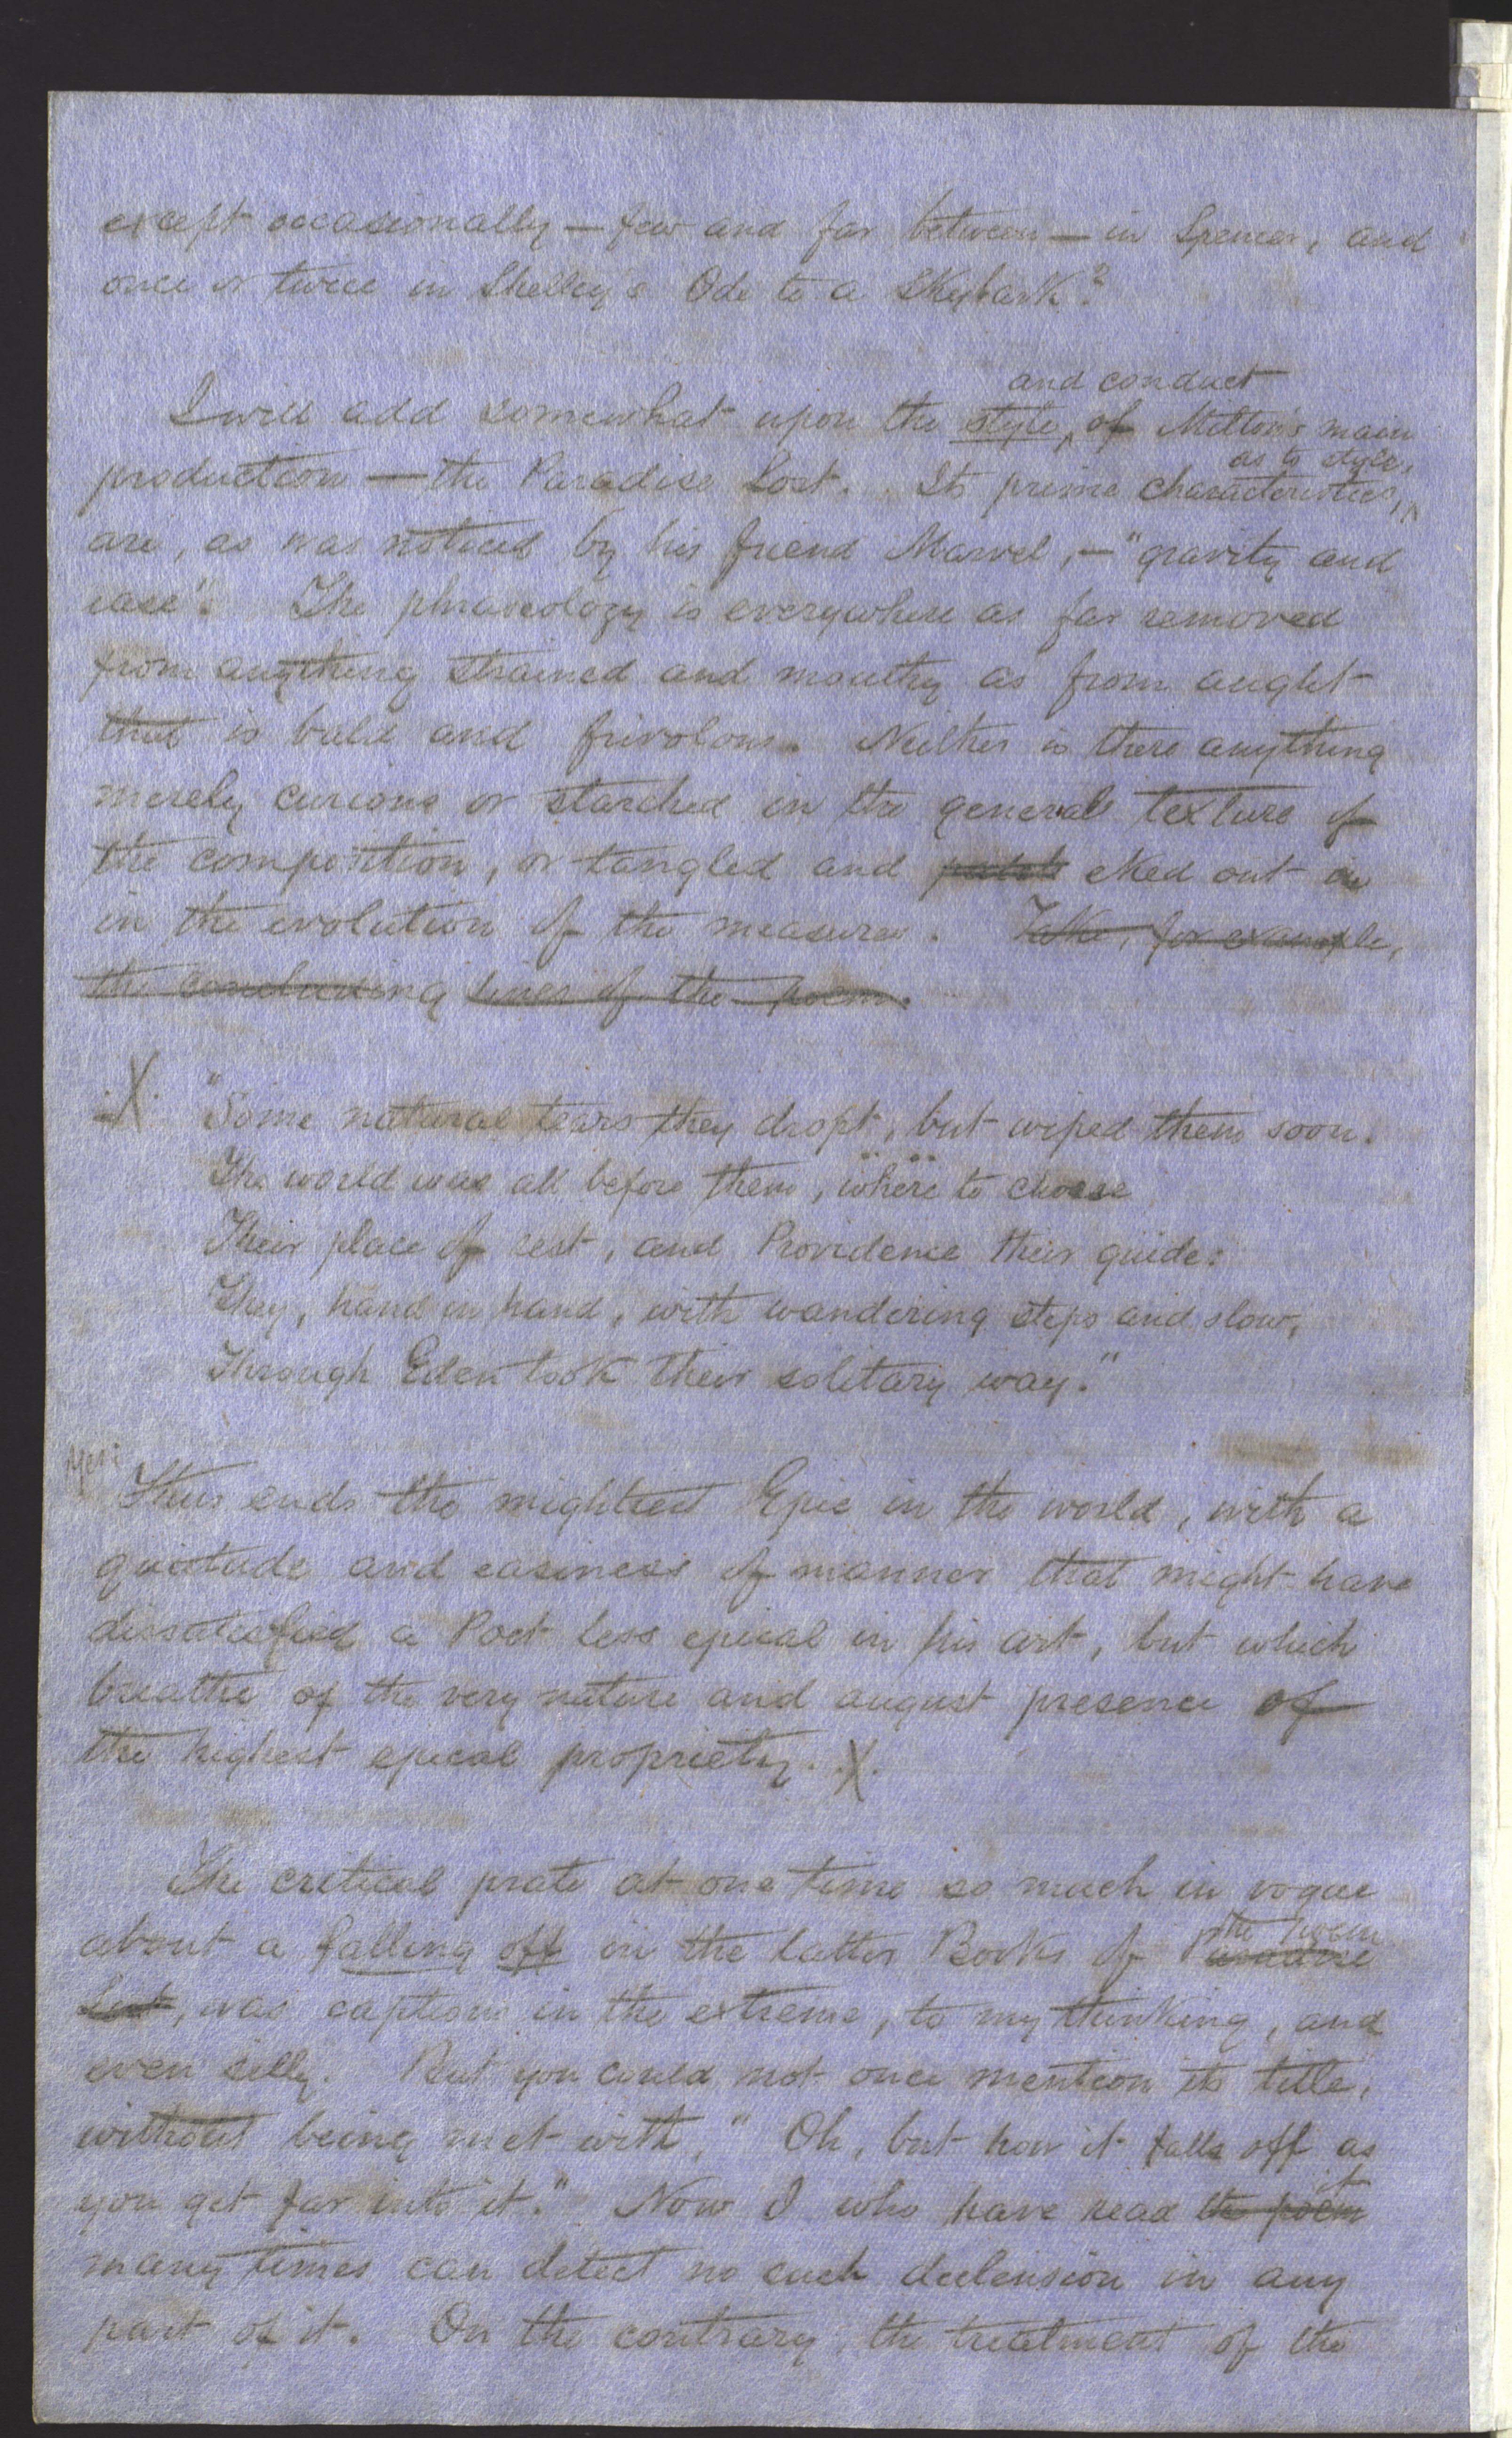 except occasionally — few and far between — in Spenser, and
once or twice in Shelley's Ode to a Skylark?
and conduct
I will add somewhat upon the style, of Milton's main
as to style,
production — the Paradise Lost. Its prime characteristics,
are, as was noticed by his friend Marvel, — "gravity and
ease". The phraseology is everywhere as far removed
from anything strained and mouthy as from aught
that is bald and frivolous. Neither is there anything
merely curious or starched in the general texture of
the composition, or tangled and eked out in
in the evolution of the measures. Take, for example,
the concluding lines of the poem.
X "Some natural tears they dropt, but wiped them soon.
The world was all before them, where to choose
Their place of rest, and Providence their guide:
They, hand in hand, with wandering steps and slow,
Through Eden took their solitary way."
Thus ends the mightiest Epic in the world, with a
quietude and easiness of manner that might have
dissatisfied a Poet less epical in his art, but which
breathe of the very nature and august presence of
the highest epical propriety. X
The critical prate at one time so much in vogue
the poem
about a falling off in the latter Books of Paradise
Lost, was captious in the extreme, to my thinking, and
even silly. But you could not once mention its title,
without being met with, "Oh, but how it falls off as
it
you get far into it." Now I who have read the poem
many times can detect no such declension in any
part of it. On the contrary, the treatment of the